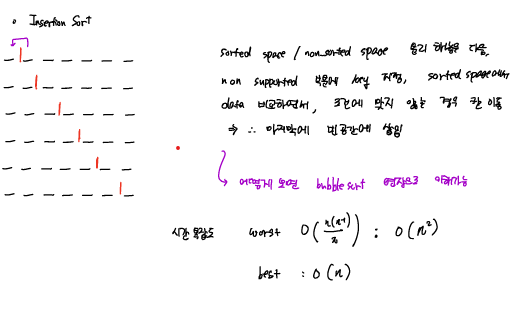 Insertion Sort
sorted space / non_sorted space 분리 해놓은 다음,
non supported 부분에 key 지정, sorted space에서
data 비교하면서, 조건에 맞지 않는 경우 칸 이동
⇒ ∴ 마지막에 빈공간에 삽입
어떻게 보면 bubble sort 연장으로 이해가능
시간 복잡도 worst O( n(n-1) / 2 ) : O(n²)
best : O(n)